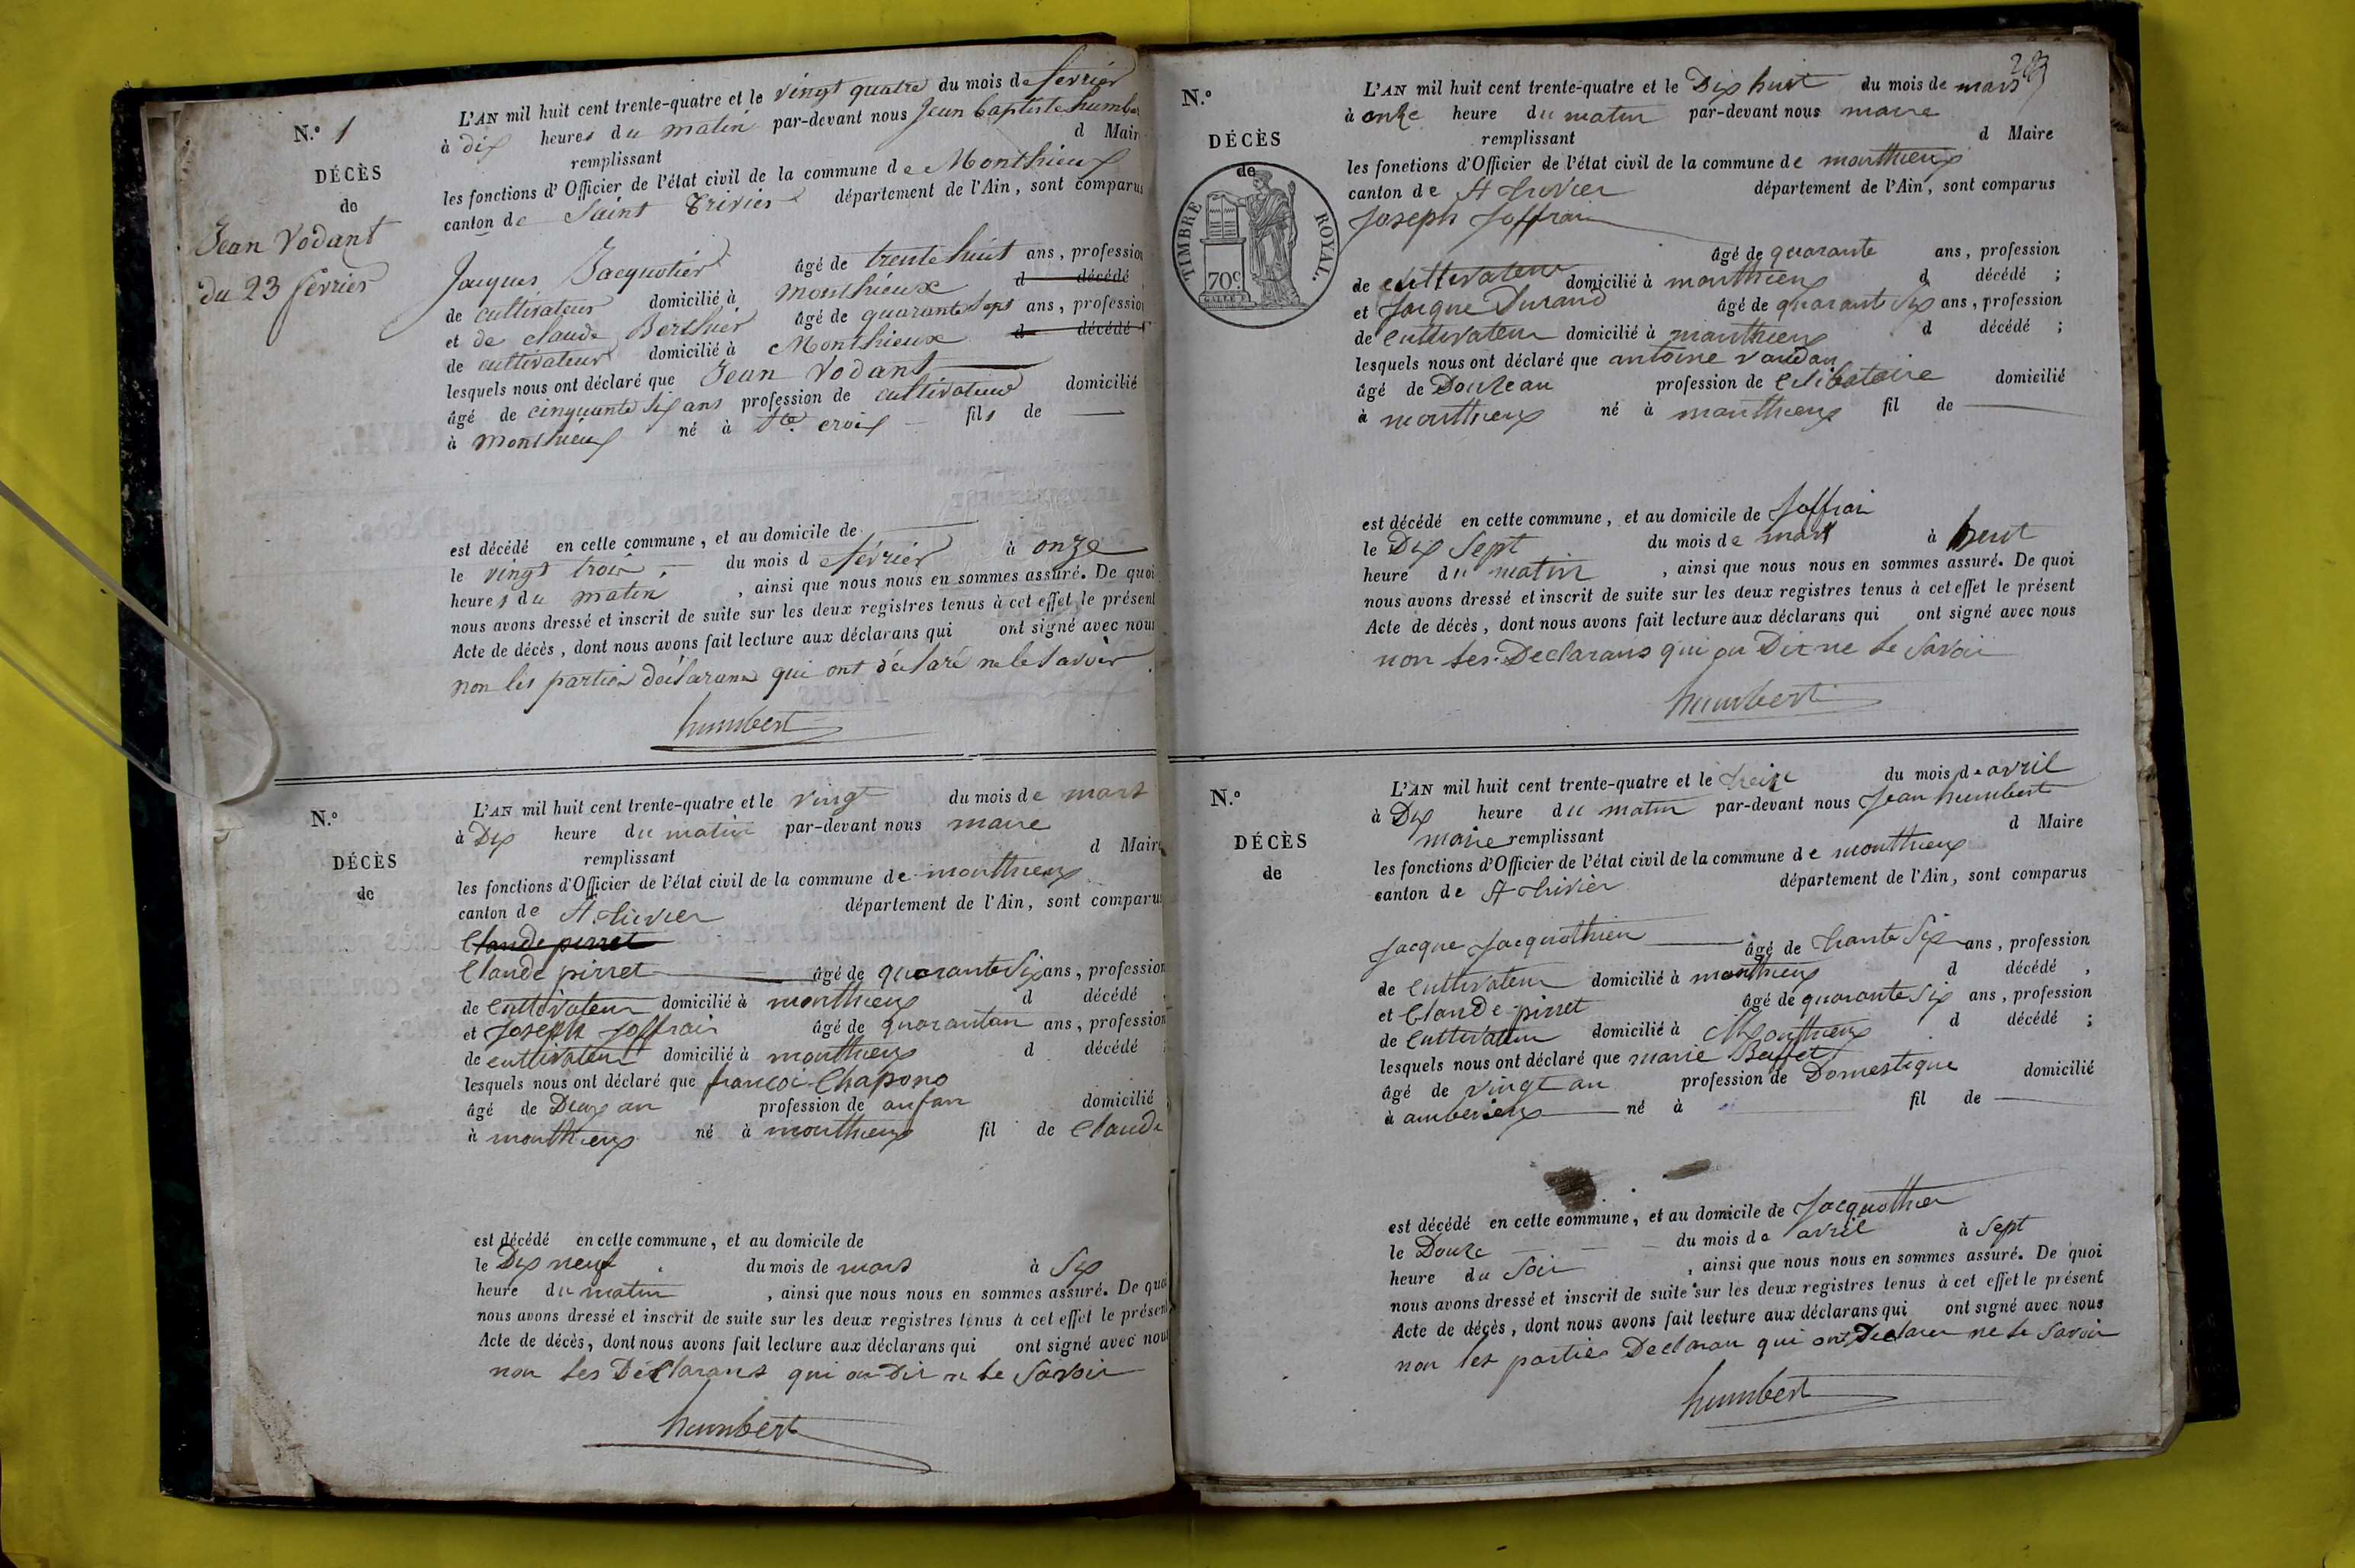 N.º 1
DÉCÈS
de
Jean Vodant
du 23 février
L'AN mil huit cent trente-quatre et le vingt quatre du mois de fevrier
à dix heures du matin par-devant nous Jean baptiste humber
remplissant d Mair
les fonctions d'Officier de l'état civil de la commune de Monthieux
canton de Saint Trivier département de l'Ain, sont comparus
Jacques Jacquotier âgé de trente huit ans, profession
de cultivateur domicilié à monthieux d décédé
et de claude Berthier âgé de quarante sept ans, profession
de cultivateur domicilié à Monthieux d décédé
lesquels nous ont déclaré que Jean Vodant
âgé de cinquante six ans profession de cultivateur domicilié
à monthieux né à Ste croix fils de
est décédé en cette commune, et au domicile de
le vingt trois du mois d février à onze
heures du matin, ainsi que nous nous en sommes assuré. De quoi
nous avons dressé et inscrit de suite sur les deux registres tenus à cet effet le présent
Acte de décès, dont nous avons fait lecture aux déclarans qui ont signé avec nous
non les parties déclarans qui ont déclaré ne le savoir
humbert
N.º
DÉCÈS
de
L'AN mil huit cent trente-quatre et le vingt du mois de mars
à Dix heure du matin par-devant nous maire
remplissant d Maire
les fonctions d'Officier de l'état civil de la commune de monthieux
canton de St. trivier département de l'Ain, sont comparus
Claude pirret
Claude pirret âgé de quarante Six ans, profession
de Cultivateur domicilié à monthieux d décédé
et Joseph Joffrai âgé de quarantan ans, profession
de cultivateur domicilié à monthieux d décédé
lesquels nous ont déclaré que francoi Chapono
âgé de Deux an profession de anfan domicilié
à monthieux né à monthieux fil de Claude
est décédé en cette commune, et au domicile de
le Dix neuf du mois de mars à Six
heure du matin, ainsi que nous nous en sommes assuré. De quoi
nous avons dressé et inscrit de suite sur les deux registres tenus à cet effet le présent
Acte de décès, dont nous avons fait lecture aux déclarans qui ont signé avec nous
non les Déclarans qui on dit ne le Savoir
humbert
283
N.º
DÉCÈS
de
TIMBRE ROYAL.
70 c.
L'AN mil huit cent trente-quatre et le Dix huit du mois de mars
à onze heure du matin par-devant nous maire
remplissant d Maire
les fonctions d'Officier de l'état civil de la commune de monthieux
canton de St trivier département de l'Ain, sont comparus
Joseph Joffrai
âgé de quarante ans, profession
de cultivateur domicilié à monthieux d décédé ;
et Jacque Durand âgé de quarant Six ans, profession
de Cultivateur domicilié à monthieux d décédé ;
lesquels nous ont déclaré que antoine vaudan
âgé de Douze an profession de Célibataire domicilié
à monthieux né à monthieux fil de
est décédé en cette commune, et au domicile de Joffrai
le Dix Sept du mois de mars à huit
heure du matin, ainsi que nous nous en sommes assuré. De quoi
nous avons dressé et inscrit de suite sur les deux registres tenus à cet effet le présent
Acte de décès, dont nous avons fait lecture aux déclarans qui ont signé avec nous
non les Declarans qui on Dit ne le Savoir
humbert
N.º
DÉCÈS
de
L'AN mil huit cent trente-quatre et le treize du mois d avril
à Dix heure du matin par-devant nous Jean humbert
maire remplissant d Maire
les fonctions d'Officier de l'état civil de la commune de monthieux
canton de St trivier département de l'Ain, sont comparus
Jacque Jacquothier âgé de trante Six ans, profession
de Cultivateur domicilié à monthieux d décédé ,
et Claude pirret âgé de quarante Six ans, profession
de Cultivateur domicilié à Monthieux d décédé ;
lesquels nous ont déclaré que marie Buffet
âgé de vingt an profession de Domestique domicilié
à amberieux né à fil de
est décédé en cette commune, et au domicile de Jacquothier
le Douze du mois de avril à Sept
heure du Soir, ainsi que nous nous en sommes assuré. De quoi
nous avons dressé et inscrit de suite sur les deux registres tenus à cet effet le présent
Acte de décès, dont nous avons fait lecture aux déclarans qui ont signé avec nous
non les parties Declaran qui ont Declarer ne le Savoir
humbert